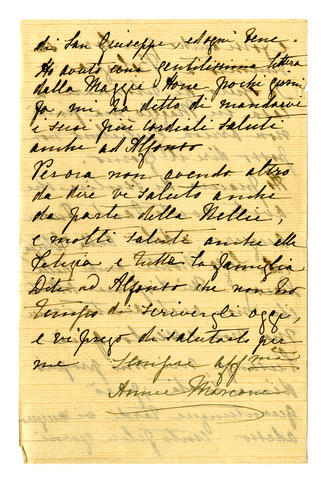 di San Giuseppe, ed ogni bene.
Ho avuto una gentilissima lettera
dalla Maggie Hone pochi giorni
fa, mi ha ditto di mandarvi
i suoi più cordiali saluti
anche ad Alfonso
Per ora non avendo altro
da dire vi saluto anche
da parte della Nellie,
e molti saluti anche alla
Letizia e tutta la famiglia
Dite ad Alfonso che non ho
tempo di scrivergle oggi,
e vi prego di salutarlo per
me Sempre affma
Annie Marconi